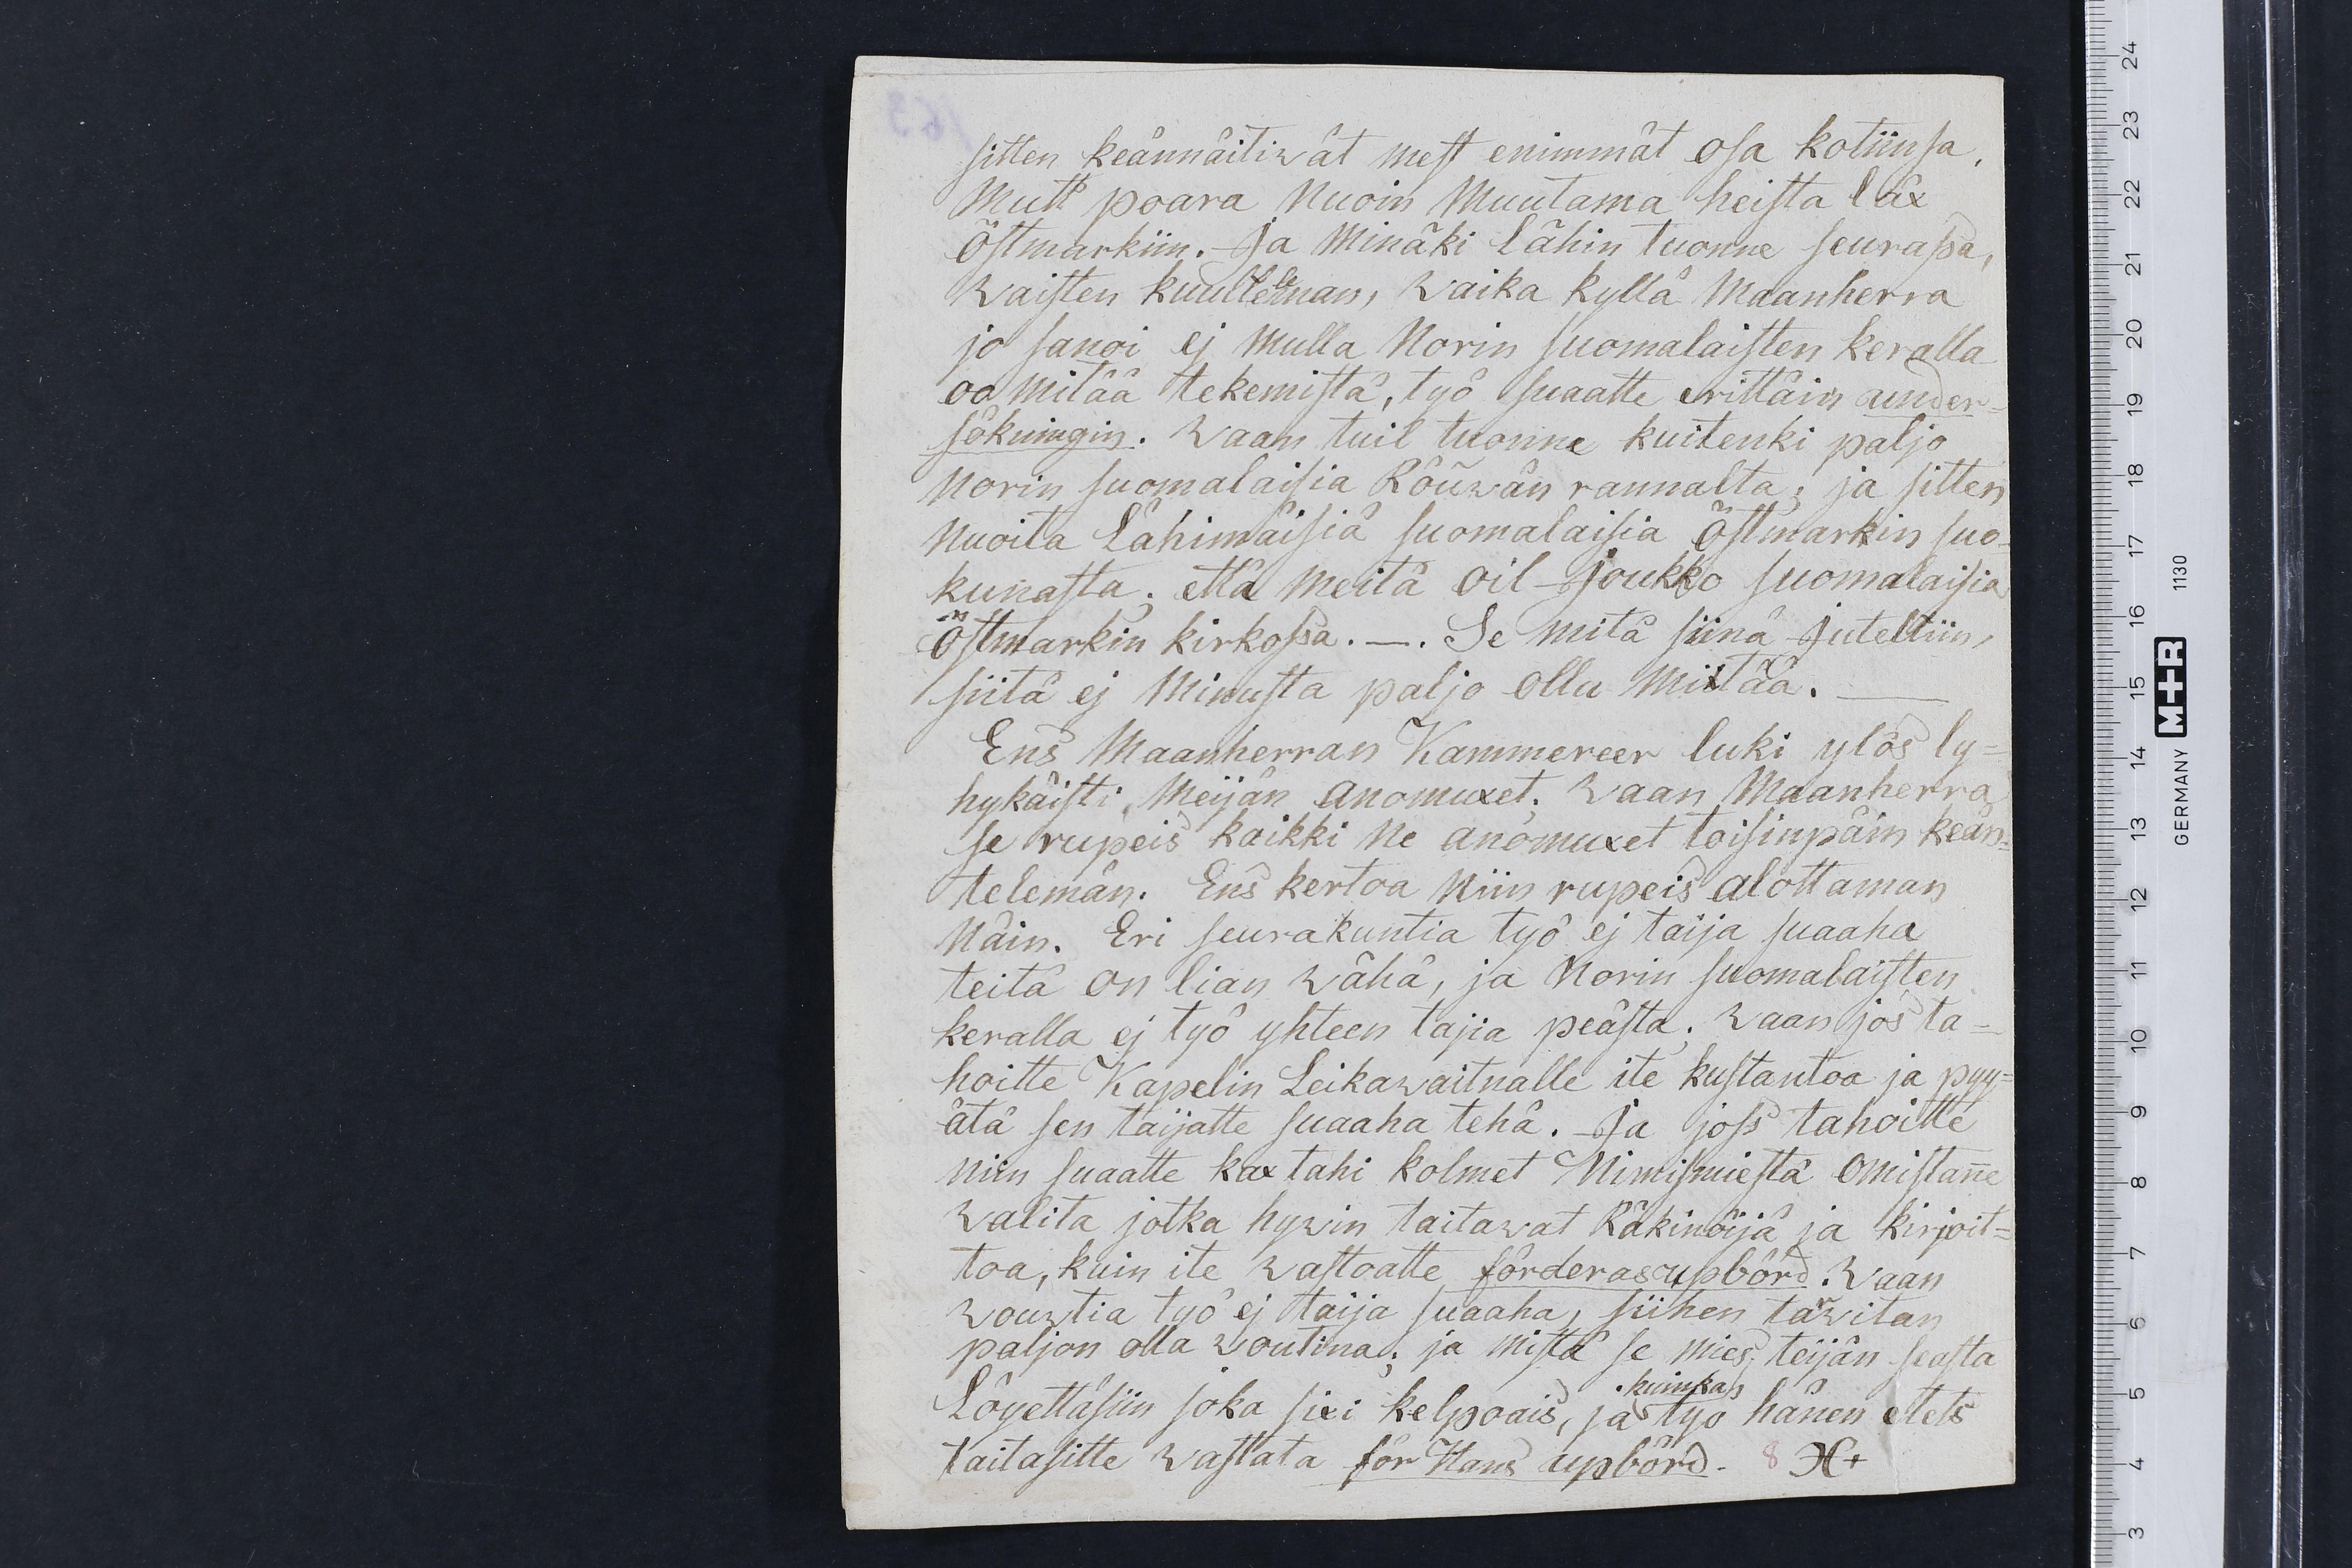 sitten keännäitiwät mest enimmät osa kotiinsa,
Mutt poara Nuoin Muutama heista läx
Östmarkiin. Ja Minäki Lähin tuonne seurassa,
waisten kuulleman, waika kyllä Maanherra
jo sanoi ej Mulla Norin suomalaisten keralla
oo Mitää tekemistä, työ suaatte erittäin under-
sökningin. Waan tuil tuonne kuitenki paljo
Norin suomalaisia Röüwän rannalta; ja sitten
Nuoita Lähimäisiä suomalaisia Östmarkin suo-
kunasta; että Meitä oil Joukko suomalaisia
Östmarkin kirkossa. —. Se Mitä siinä Juteltiin,
siitä ej Minusta paljo ollu Mittää. —
Ens Maanherran Kammereer luki ylös ly=
hykäisti, Meijän anomuxet. Waan Maanherra
se rupeis kaikki Ne anomuxet toisinpäin keän=
telemän. Ens kertoa Niin rupeis alottaman
Näin. Eri seurakuntia työ ej taija suaaha
teitä on lian wähä, ja Norin suomalaisten
keralla ej työ yhteen tajia peästä; Waan jos ta=
hoitte Kapelin Leikawaitnalle ite kustantoa ja pyy=
ätä sen taijatte suaaha tehä. Ja joss tahoitte
niin suaatte kax tahi kolmet Nimismiestä Omistan̄e
walita jotka hywin taitawat Räkinöijä ja kirjoit=
toa, kuin ite wastoatte förderas upbörd. Waan
wouwtia työ ej taija suaaha, siihen tarwitan
paljon olla woutina; ja Mistä se Mies teijän seasta
Löyettäsiin joka sixi kelpoais, ja kuinkas työ hänen etets
taitasitte wastata för Hans upbörd. 8 H+
163
24
23
22
21
20
19
18
17
16
15
14
13
12
11
10
9
8
7
6
5
4
3
GERMANY M+R 1130